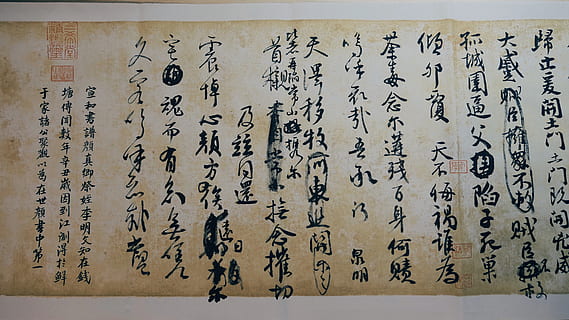 歸止爰開土門土門既開凶威
大蹙賊臣擁衆不救賊臣不救
孤城圍逼父陷子死巢
傾卵覆天不悔禍誰為
荼毒念爾遘殘百身何贖
嗚乎哀哉吾承
泉明
天澤移牧河關
比者再陷常山携爾
首櫬
撫念摧切
及茲同還
震悼心顏方俟
遠日
卜爾
宅魂而有知無嗟
久客嗚呼哀哉尚饗
宣和書譜顏真卿祭姪季明文知在錢
塘傳聞數年辛丑歲因到江浙得於鮮
于家諸公聚觀以為在世顏書中第一